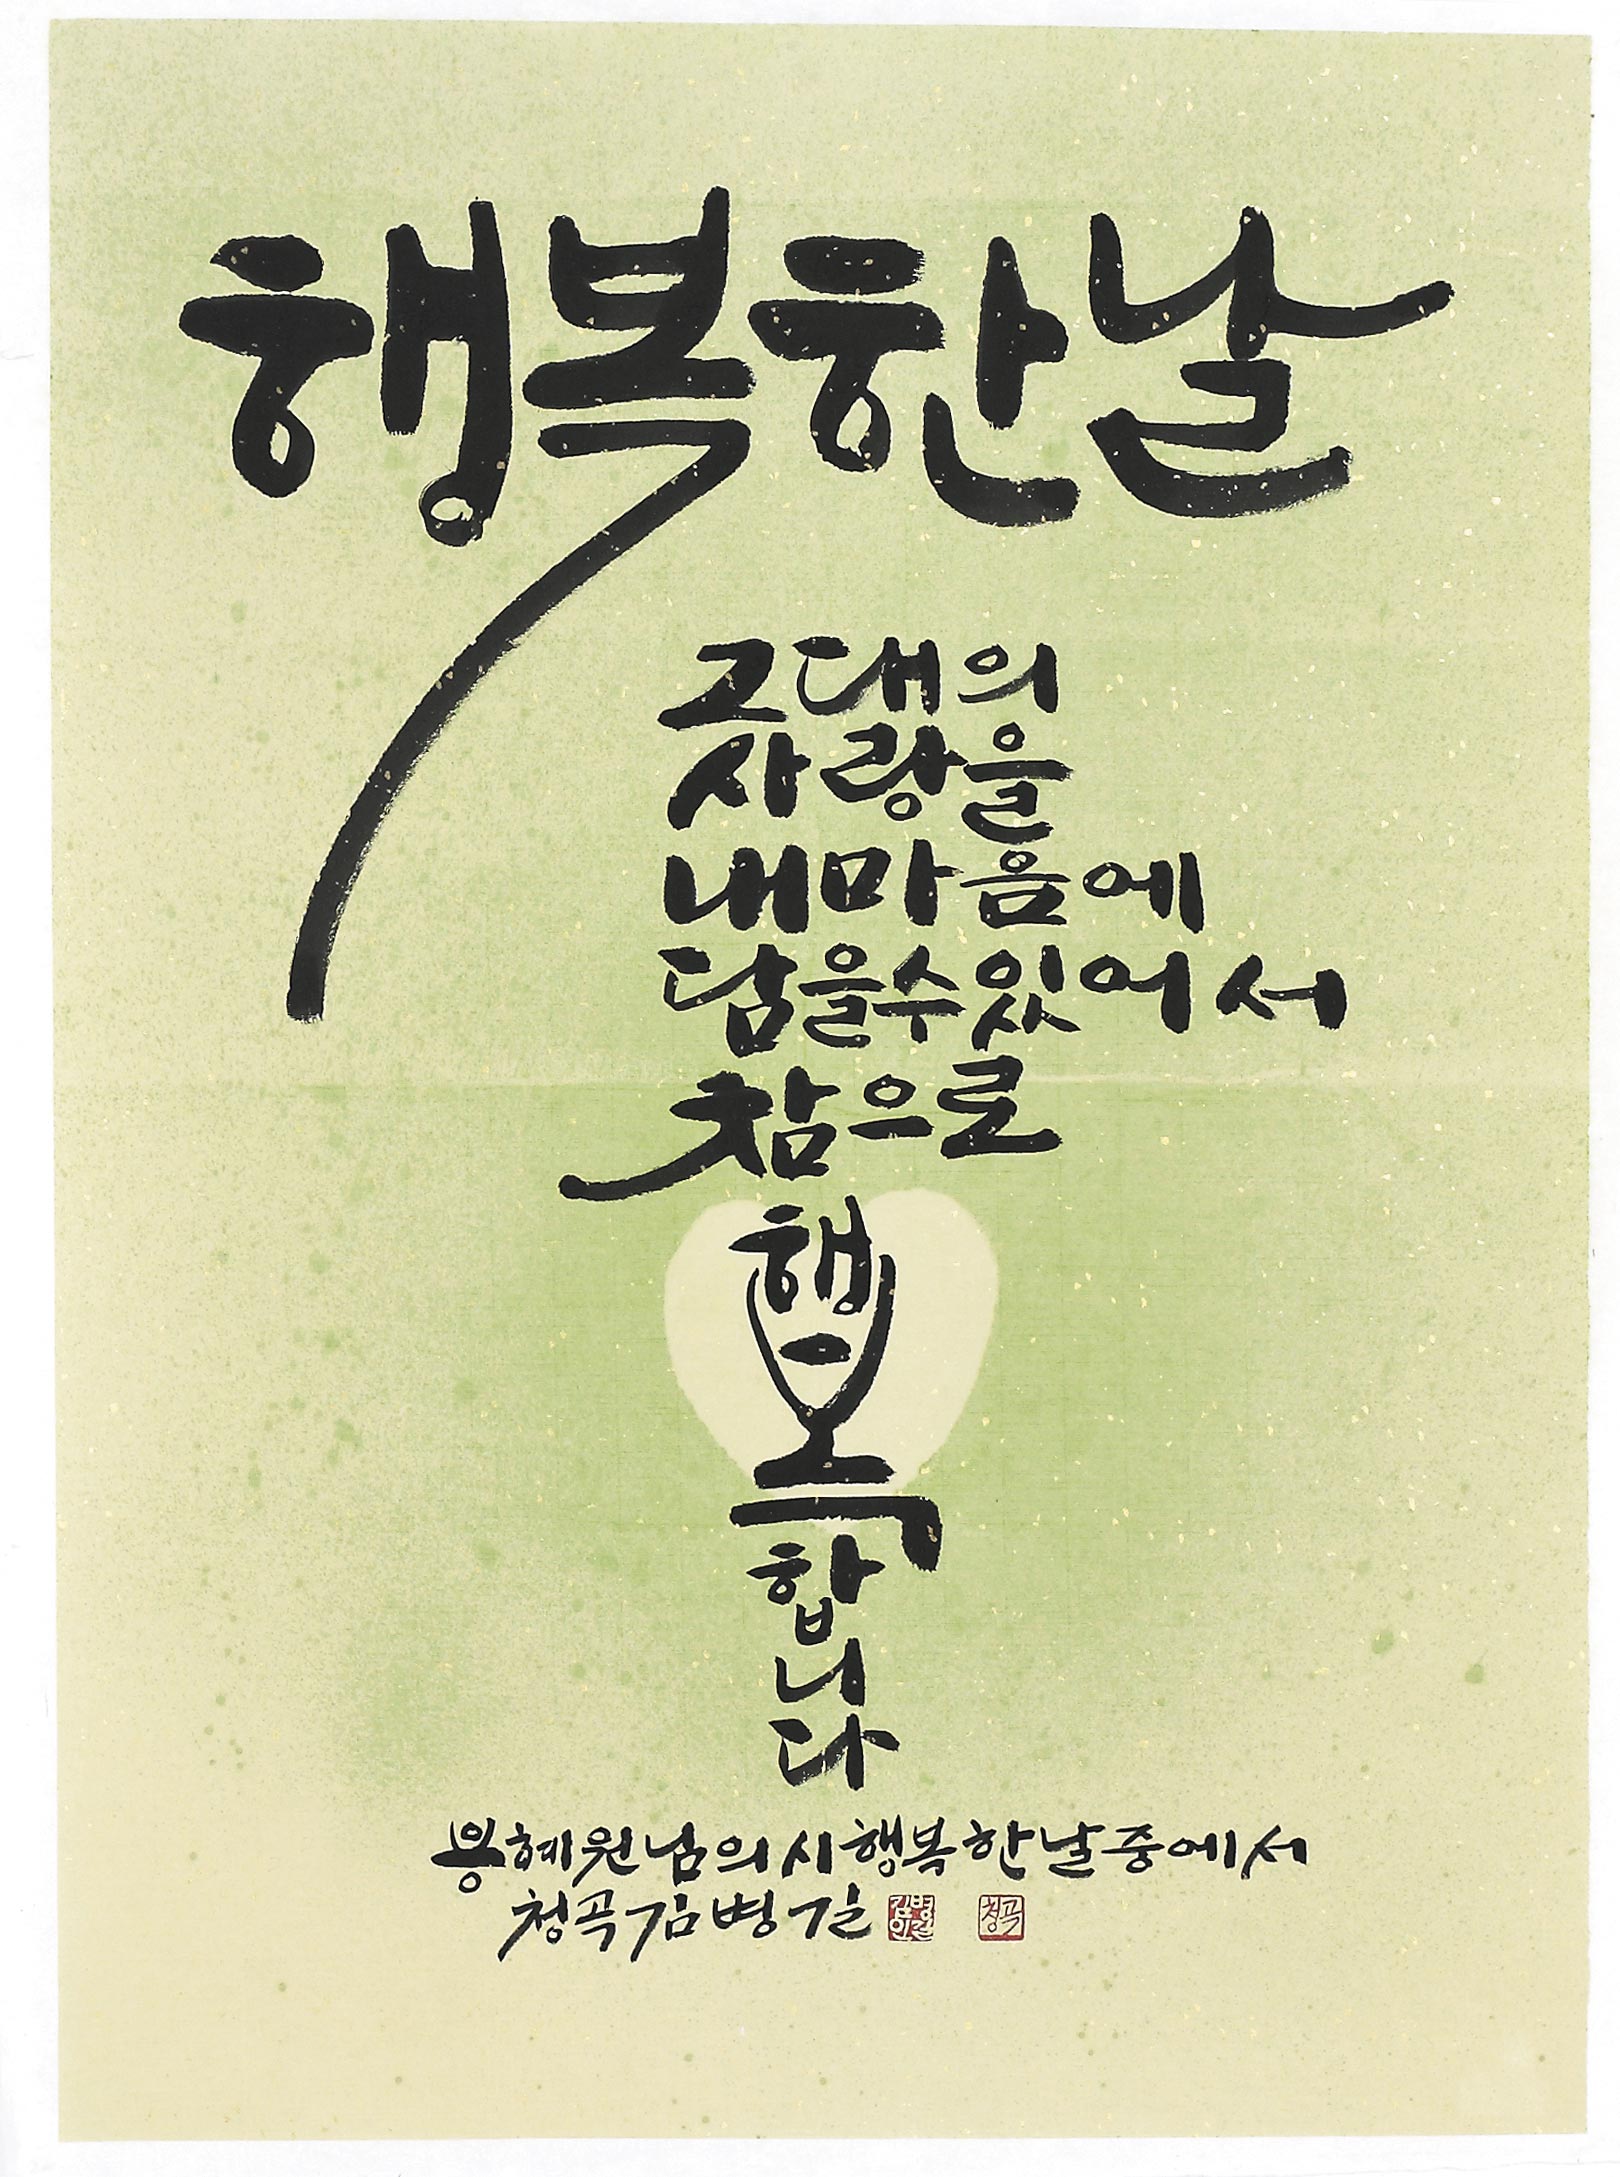 행복한날
그대의
사랑을
내마음에
담을수있어서
참으로
행
복
합
니
다
용혜원님의시행복한날중에서
청곡김병길
김병길인
청곡